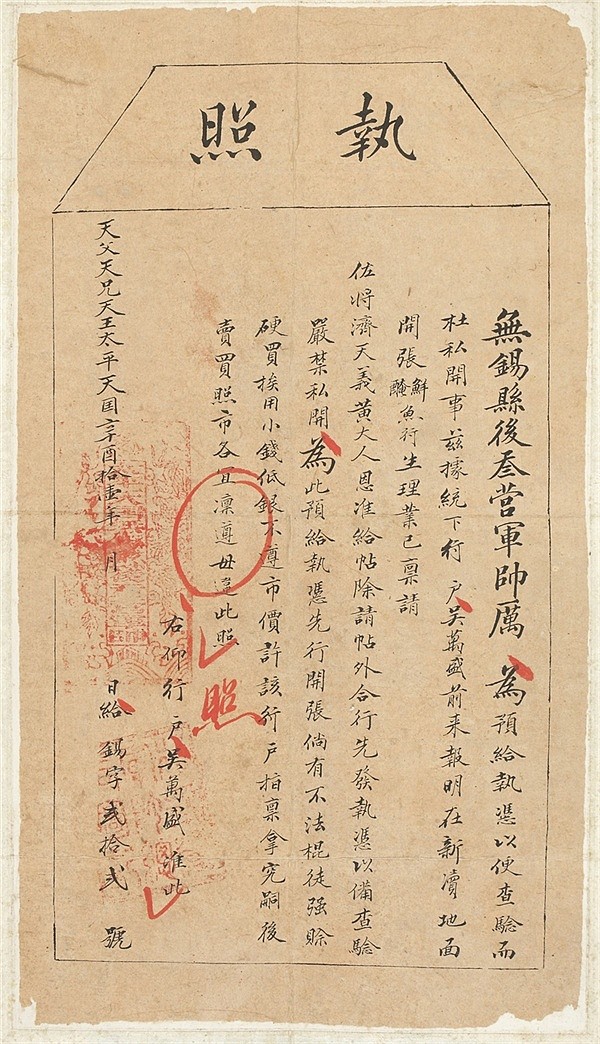 執照
無錫縣後叁营軍帥厲 為預給執憑以便查驗而
杜私開事茲據統下行户吳萬盛前来報明在新瀆地面
開張鮮醃魚行生理業已稟請
佐將濟天義黃大人恩准給帖除請帖外合行先發執憑以備查驗
嚴禁私開為此預給執憑先行開張倘有不法棍徒强賒
硬買挨用小錢低銀不遵市價許該行户指稟拿究嗣後
賣買照市各宜凛遵毋違此照
照
右仰行户吳萬盛准此
天父天兄天王太平天囯辛酉拾壹年 月 日給 錫字弍拾弍 號